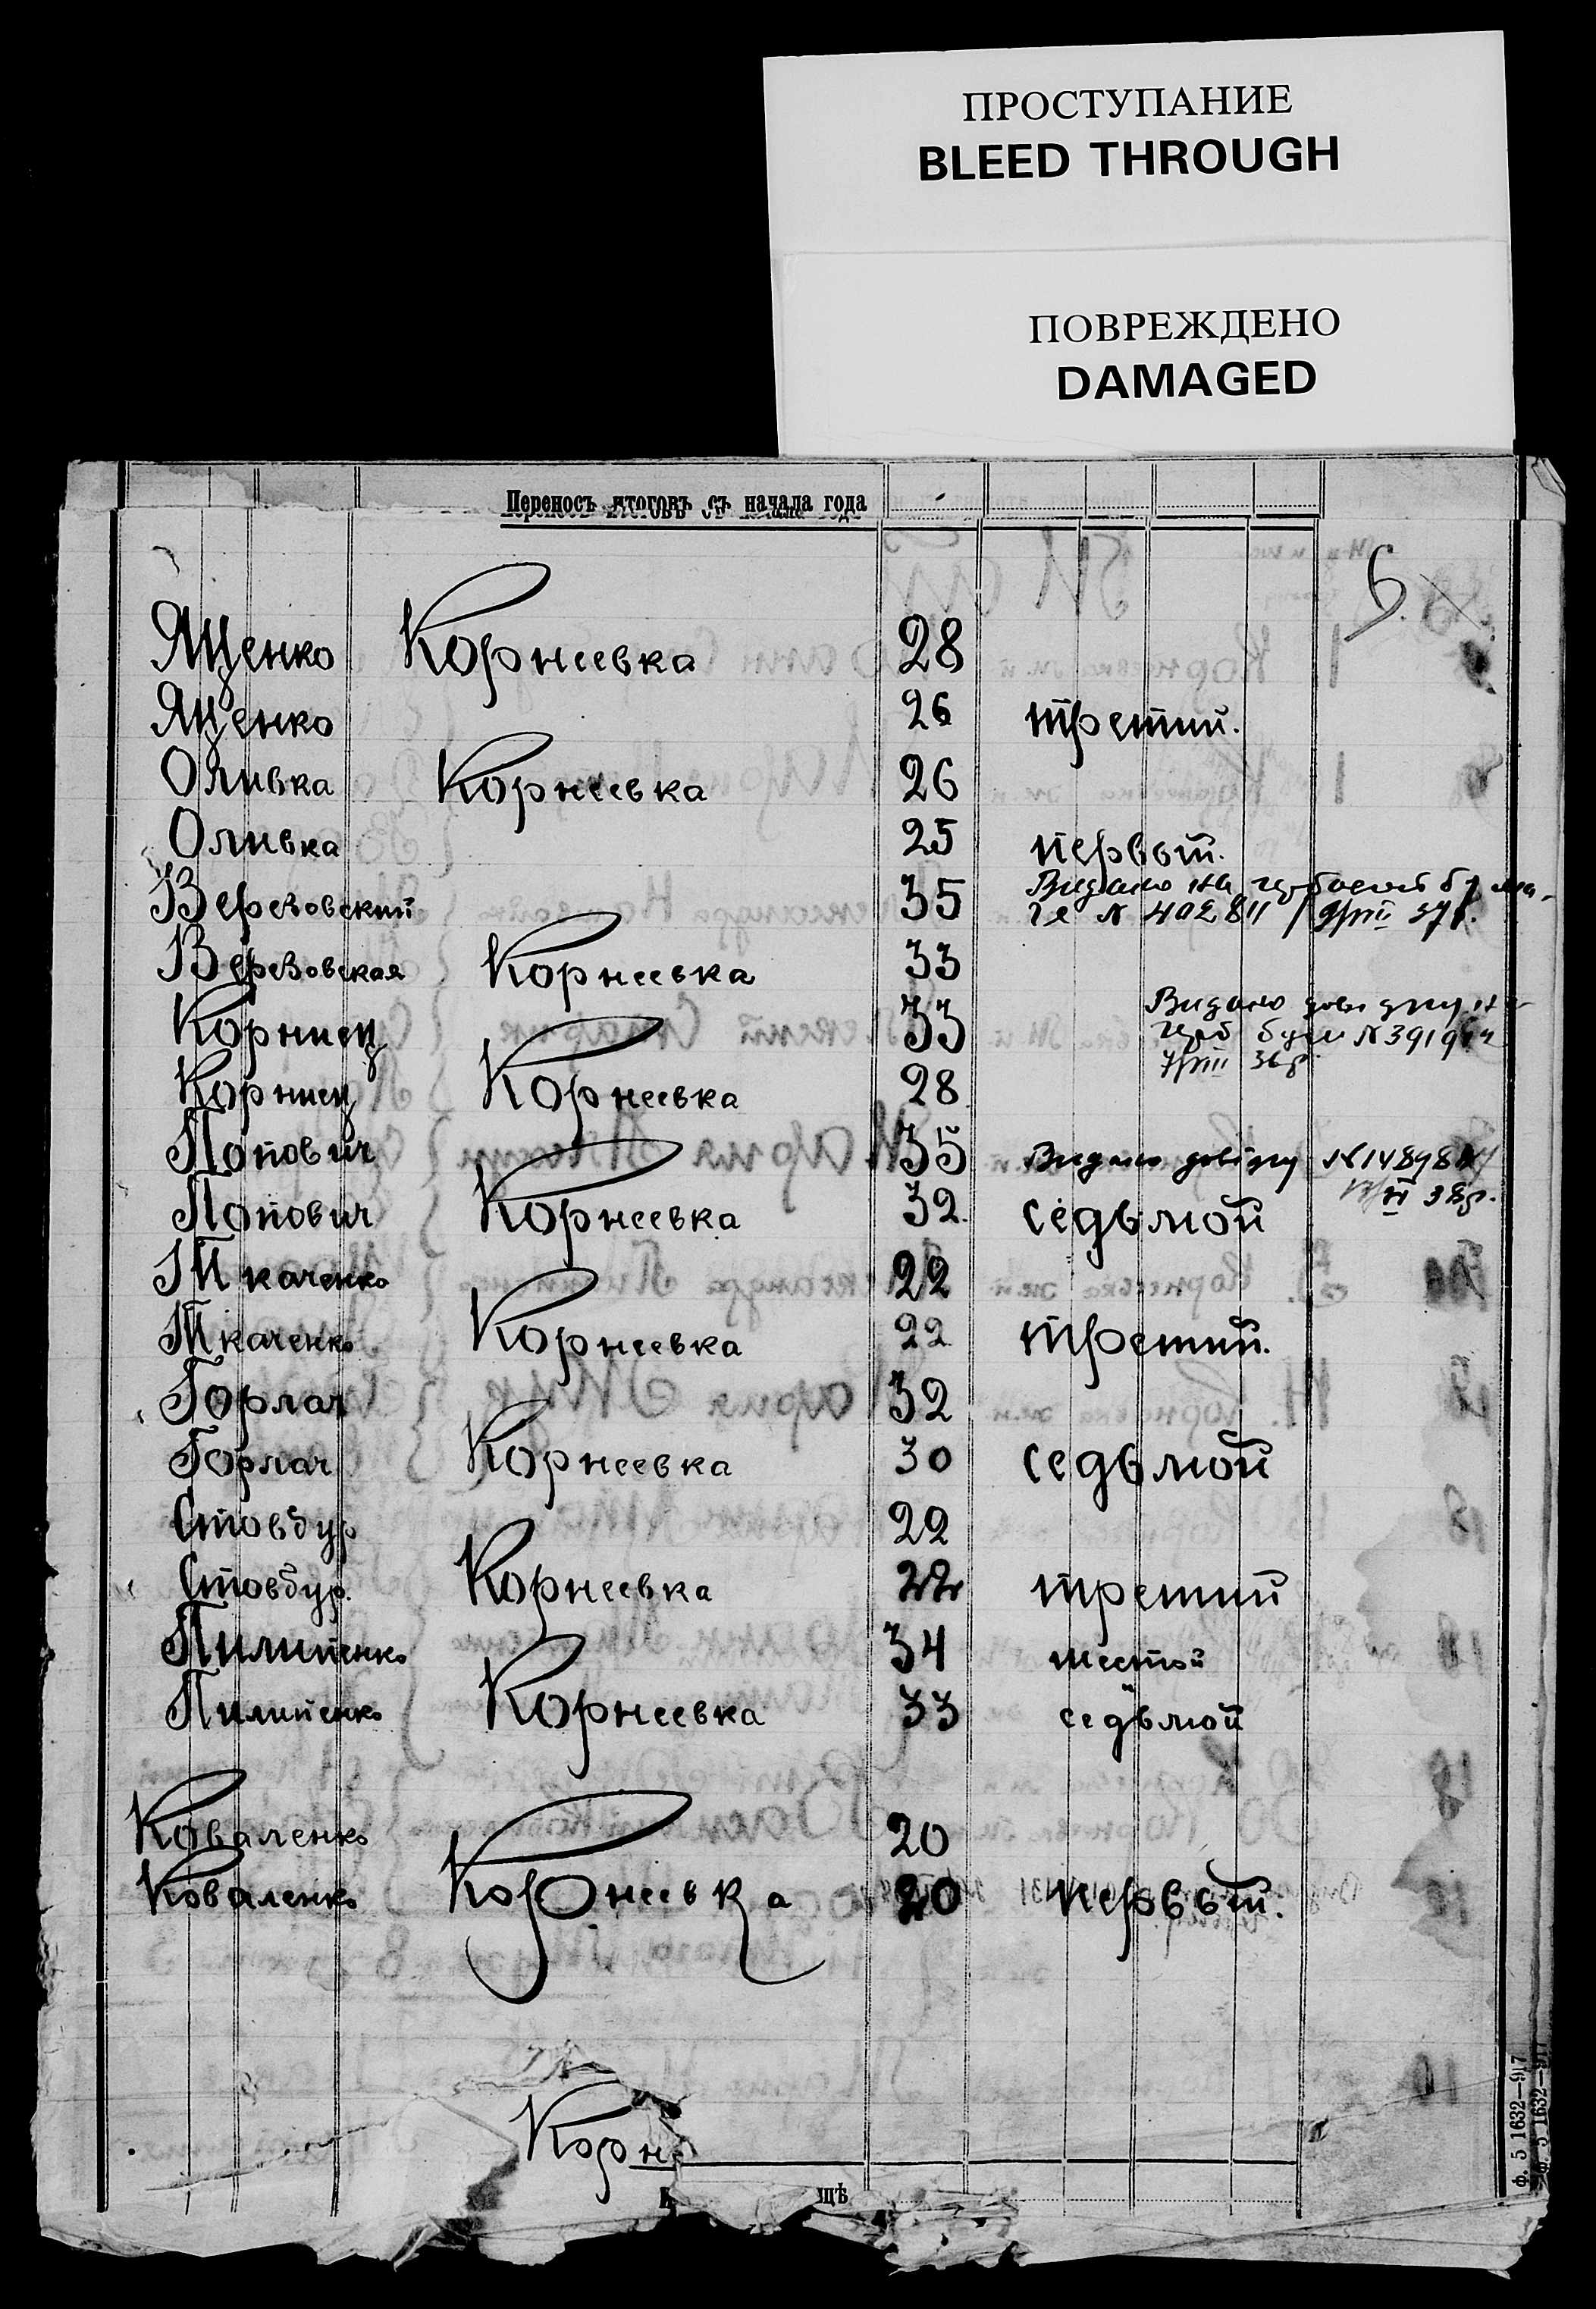 ПРОСТУПАНИЕ
BLEED THROUGH
ПОВРЕЖДЕНО
DAMAGED
Переносъ итоговъ съ начала года
6.
Ященко Корнеевка 28
Ященко 26 третий.
Оливка Корнеевка 26
Оливка 25 первый.
Березовский 35 Видано на гербовой бума-
ге N 402811 9/VIII 37 г.
Березовская Корнеевка 33
Корниец 33 Видано довидку на
герб бум N
7/VIII 36 р.
Корниец Корнеевка 28
Попович 35 Видано довідку N
38р.
Попович Корнеевка 32. седьмой
Ткаченко 22
Ткаченко Корнеевка 22 третий.
Горлач 32
Горлач Корнеевка 30 седьмой
Стовбур 22
Стовбур. Корнеевка 22 третий
Пилипенко 34 шестой
Пилипенко Корнеевка 33 седьмой
Коваленко 20
Коваленко Корнеевка 20 первый.
Корне
щѣ
Ф. 5 1632—917
Ф. 5 1632—917